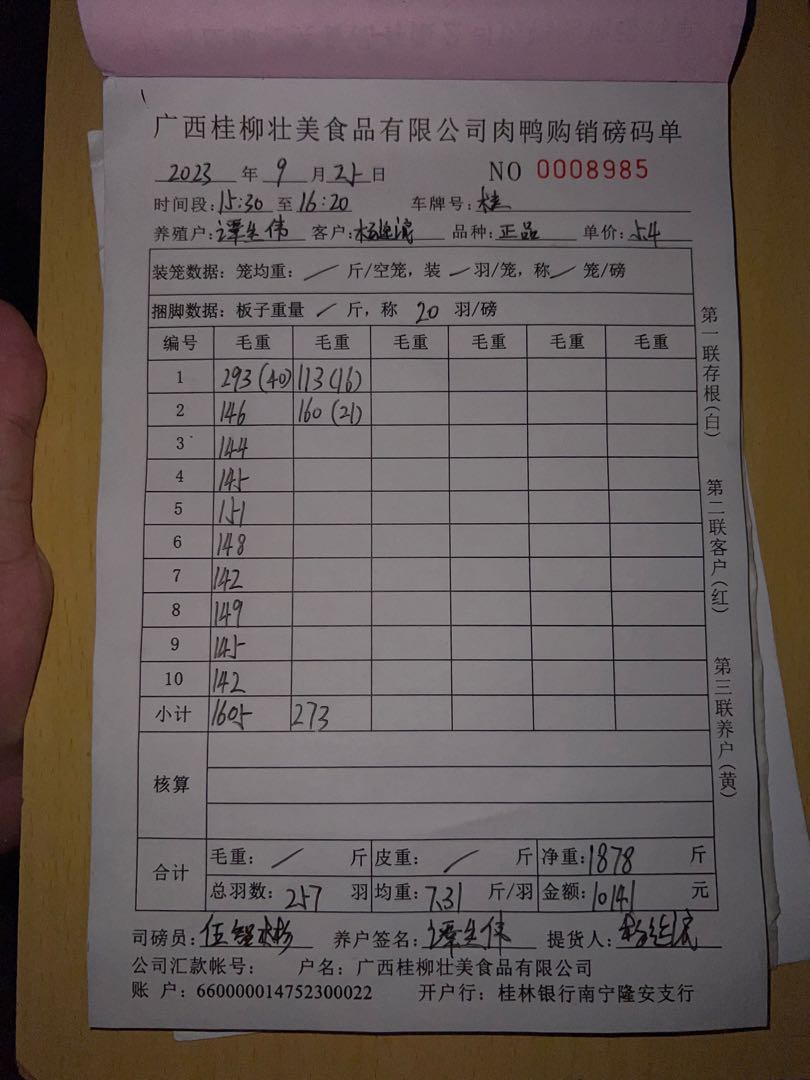 广西桂柳壮美食品有限公司肉鸭购销磅码单
2023 年 9 月 25 日 NO 0008985
时间段:15:30 至 16:20 车牌号:桂
养殖户:谭生伟 客户: 品种:正品 单价:5.4
装笼数据:笼均重:/ 斤/空笼,装 / 羽/笼,称 / 笼/磅
捆脚数据:板子重量 / 斤,称 20 羽/磅
编号 毛重 毛重 毛重 毛重 毛重 毛重
1 293(40) 113(16)
2 146 160(21)
3 144
4 145
5 151
6 148
7 142
8 149
9 145
10 142
小计 1605 273
核算
合计 毛重:/ 斤 皮重:/ 斤 净重:1878 斤
总羽数:257 羽 均重:7.31 斤/羽 金额:10141 元
司磅员: 养户签名:谭生伟 提货人:
公司汇款帐号: 户名:广西桂柳壮美食品有限公司
账 户:660000014752300022 开户行:桂林银行南宁隆安支行
第一联存根(白)
第二联客户(红)
第三联养户(黄)